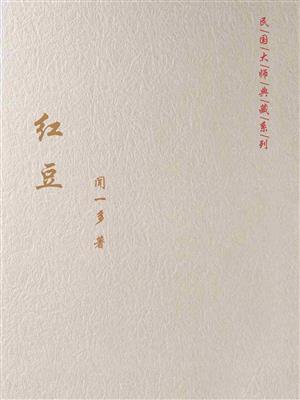 民国大师典藏系列
红豆
闻一多 著